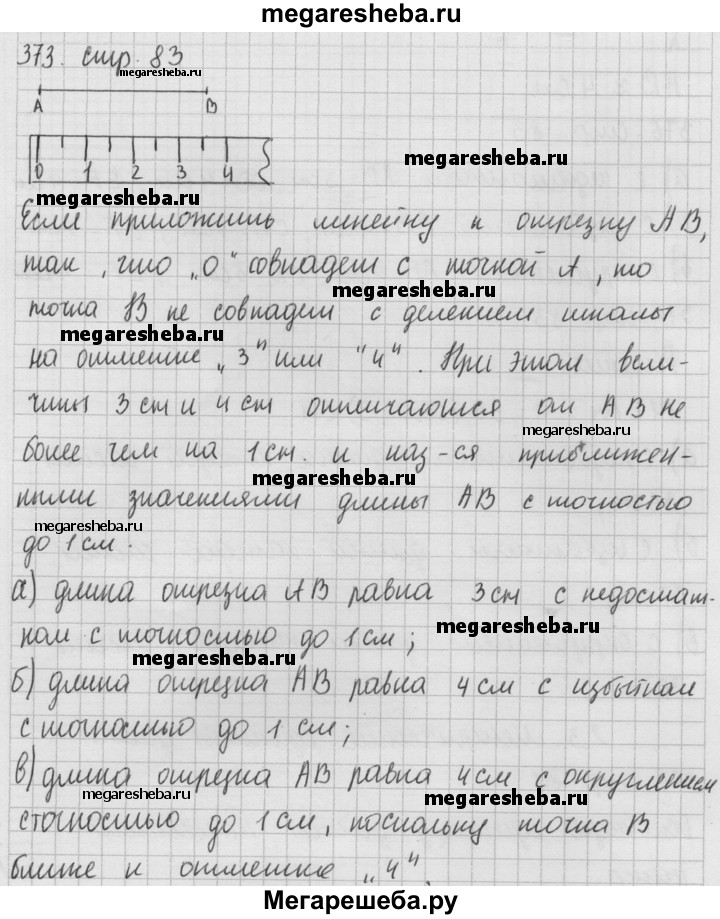 megaresheba.ru
373. стр. 83
megaresheba.ru
A B
megaresheba.ru
0 1 2 3 4
megaresheba.ru
Если приложить линейку к отрезку AB,
так, что „0“ совпадет с точкой A, то
megaresheba.ru
точка B не совпадет с делением шкалы
megaresheba.ru
на отметке „3" или "4". При этом вели-
чины 3 см и 4 см отличаются от AB не
megaresheba.ru
более чем на 1 см. и наз-ся приближен-
megaresheba.ru
ными значениями длины AB с точностью
megaresheba.ru
до 1 см.
а) длина отрезка AB равна 3 см с недостат-
megaresheba.ru
ком с точностью до 1 см;
megaresheba.ru
б) длина отрезка AB равна 4 см с избытком
с точностью до 1 см;
в) длина отрезка AB равна 4 см с округлением
megaresheba.ru megaresheba.ru
с точностью до 1 см, поскольку точка B
ближе к отметке „4".
Мегарешеба.ру